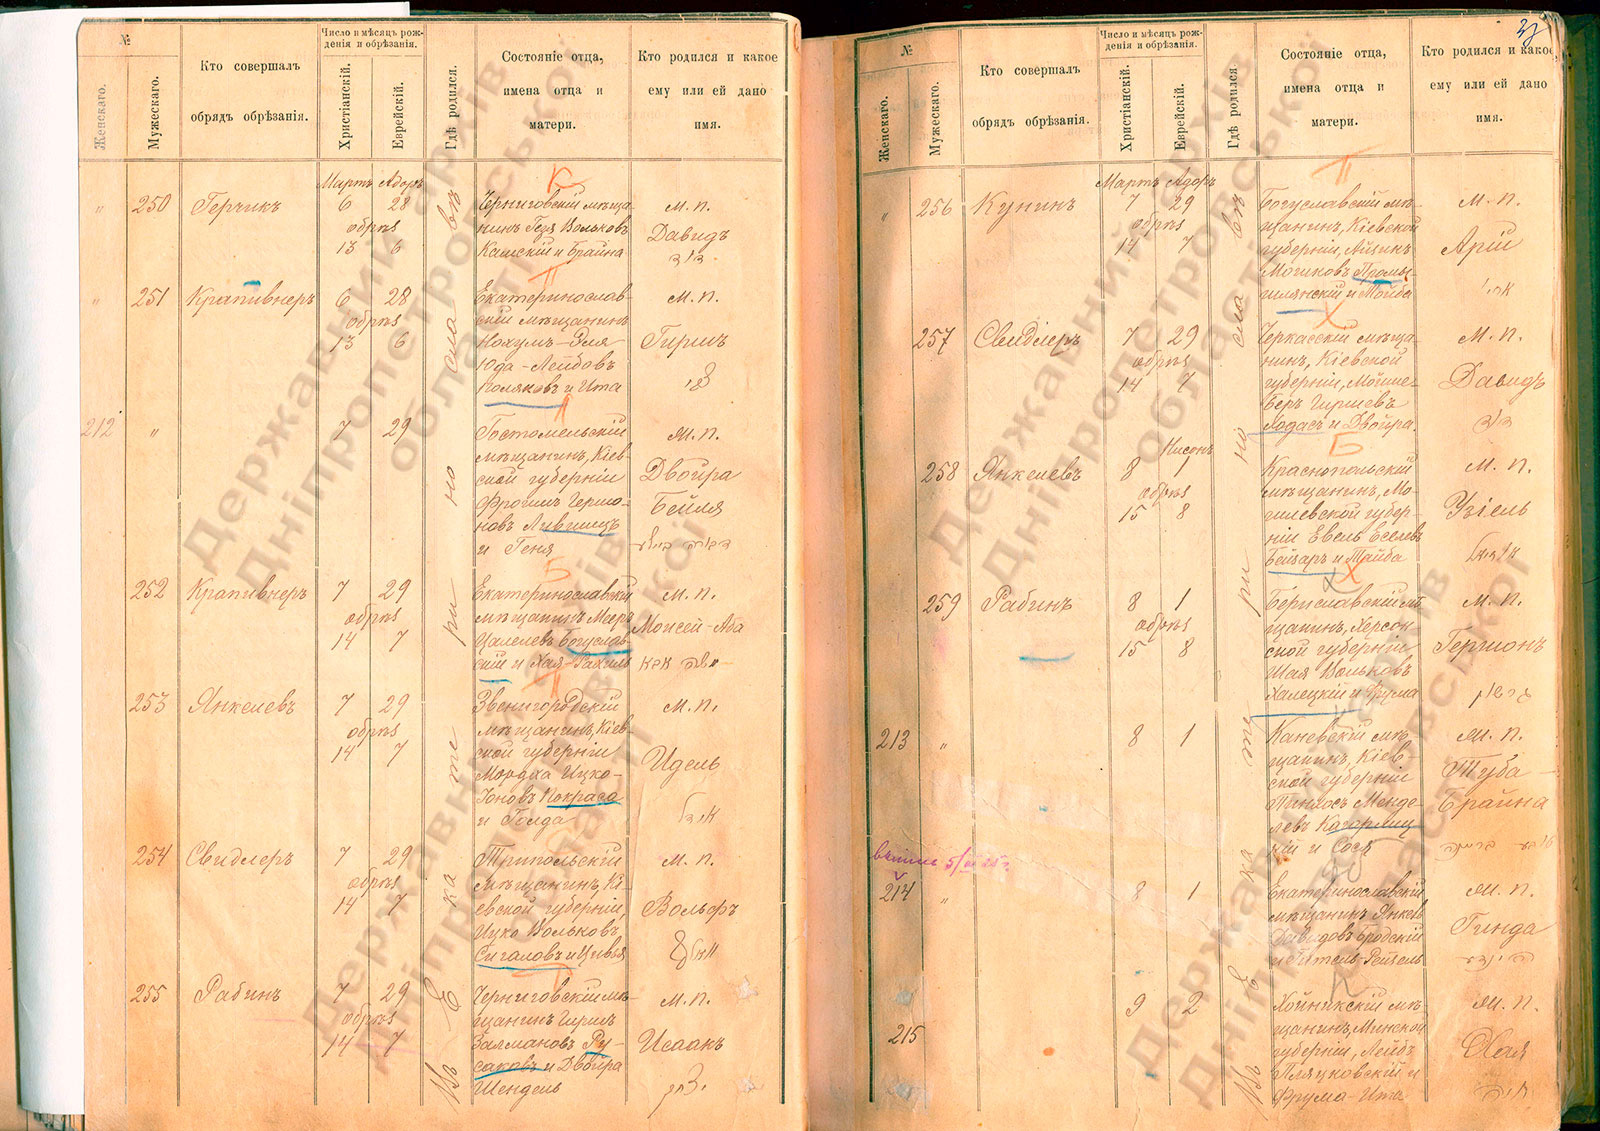 №
Женскаго.
Мужескаго.
Кто совершалъ
обрядъ обрѣзанія.
Число и мѣсяцъ рож-
денія и обрѣзанія.
Христіанскій.
Еврейскій.
Гдѣ родился.
Состояніе отца,
имена отца и
матери.
Кто родился и какое
ему или ей дано
имя.
Мартъ Адоръ
„ 250 Герчикъ 6 28
обрѣз
13 6
Черниговскій мѣща-
нинъ Вольковъ
и Брайна
М. п.
Давидъ
דוד
„ 251 Крапивнеръ 6 28
обрѣз
13 6
Екатеринослав-
скій мѣщанинъ
Нохумъ-Эля
Юда-Лейбовъ
Поляковъ и Ита
М. п.
Гиршъ
212 „ 7 29
Гостомельскій
мѣщанинъ, Кіев-
ской губерніи
Фроимъ
новъ Лившицъ
и Геня
М. п.
Двойра
Бейля
252 Крапивнеръ 7 29
обрѣз
14 7
Екатеринославскій
мѣщанинъ Мееръ
Цалелевъ Богуслав-
скій и Хая-Рахиль
М. п.
Моисей-Аба
משה אבא
253 Янкелевъ 7 29
обрѣз
14 7
Звенигородскій
мѣщанинъ, Кіев-
ской губерніи
Мордка Ицко-
Іоновъ Покраса
и Голда
М. п.
Идель
254 Свидлеръ 7 29
обрѣз
14 7
Трипольскій
мѣщанинъ, Кі-
евской губерніи,
Ицко Вольковъ
Сигаловъ и Цивья
М. п.
Вольфъ
255 Рабинъ 7 29
обрѣз
14 7
Черниговскій мѣ-
щанинъ Гиршъ
Залмановъ Ру-
саковъ и Двойра
Шендель
М. п.
Исаакъ
Въ Екатеринославѣ
№
Женскаго.
Мужескаго.
Кто совершалъ
обрядъ обрѣзанія.
Число и мѣсяцъ рож-
денія и обрѣзанія.
Христіанскій.
Еврейскій.
Гдѣ родился.
Состояніе отца,
имена отца и
матери.
Кто родился и какое
ему или ей дано
имя.
Мартъ Адоръ
„ 256 Кунинъ 7 29
обрѣз
14 7
Богуславскій мѣ-
щанинъ, Кіевской
губерніи, Ицикъ
Мошковъ Промы-
шлянскій и Мойба
М. п.
Арій
257 Свидлеръ 7 29
обрѣз
14 7
Черкасскій мѣща-
нинъ, Кіевской
губерніи, Мойше-
Беръ Гиршевъ
Ходасъ и Двойра.
М. п.
Давидъ
דוד
Нисонъ
258 Янкелевъ 8 1
обрѣз
15 8
Краснопольскій
мѣщанинъ, Мо-
гилевской губер-
ніи Евель Еселевъ
и Тайба
М. п.
Узіель
259 Рабинъ 8 1
обрѣз
15 8
Бериславскій мѣ-
щанинъ, Херсон
ской губерніи
Шая Вольковъ
Халецкій и Фрума
М. п.
Гершонъ
גרשון
213 „ 8 1
Каневскій мѣ-
щанинъ, Кіев-
ской губерніи
Пинхосъ Менде-
левъ Кагарлиц-
кій и Сося
М. п.
Туба-
Брайна
214 „ 8 1
Екатеринославскій
мѣщанинъ Янкель
Давидовъ Бродскій
и Гитель-Рейзель
М. п.
Гинда
215 9 2
Хойникскій мѣ-
щанинъ, Минской
губерніи, Лейбъ
Пляцковскій и
Фрума-Ита
М. п.
Хая
חיה
Въ Екатеринославѣ
Державний архів
Дніпропетровської
області